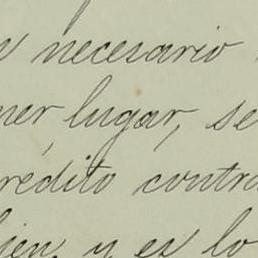 necesario
mer lugar, se
rédito contra
bien, y es lo